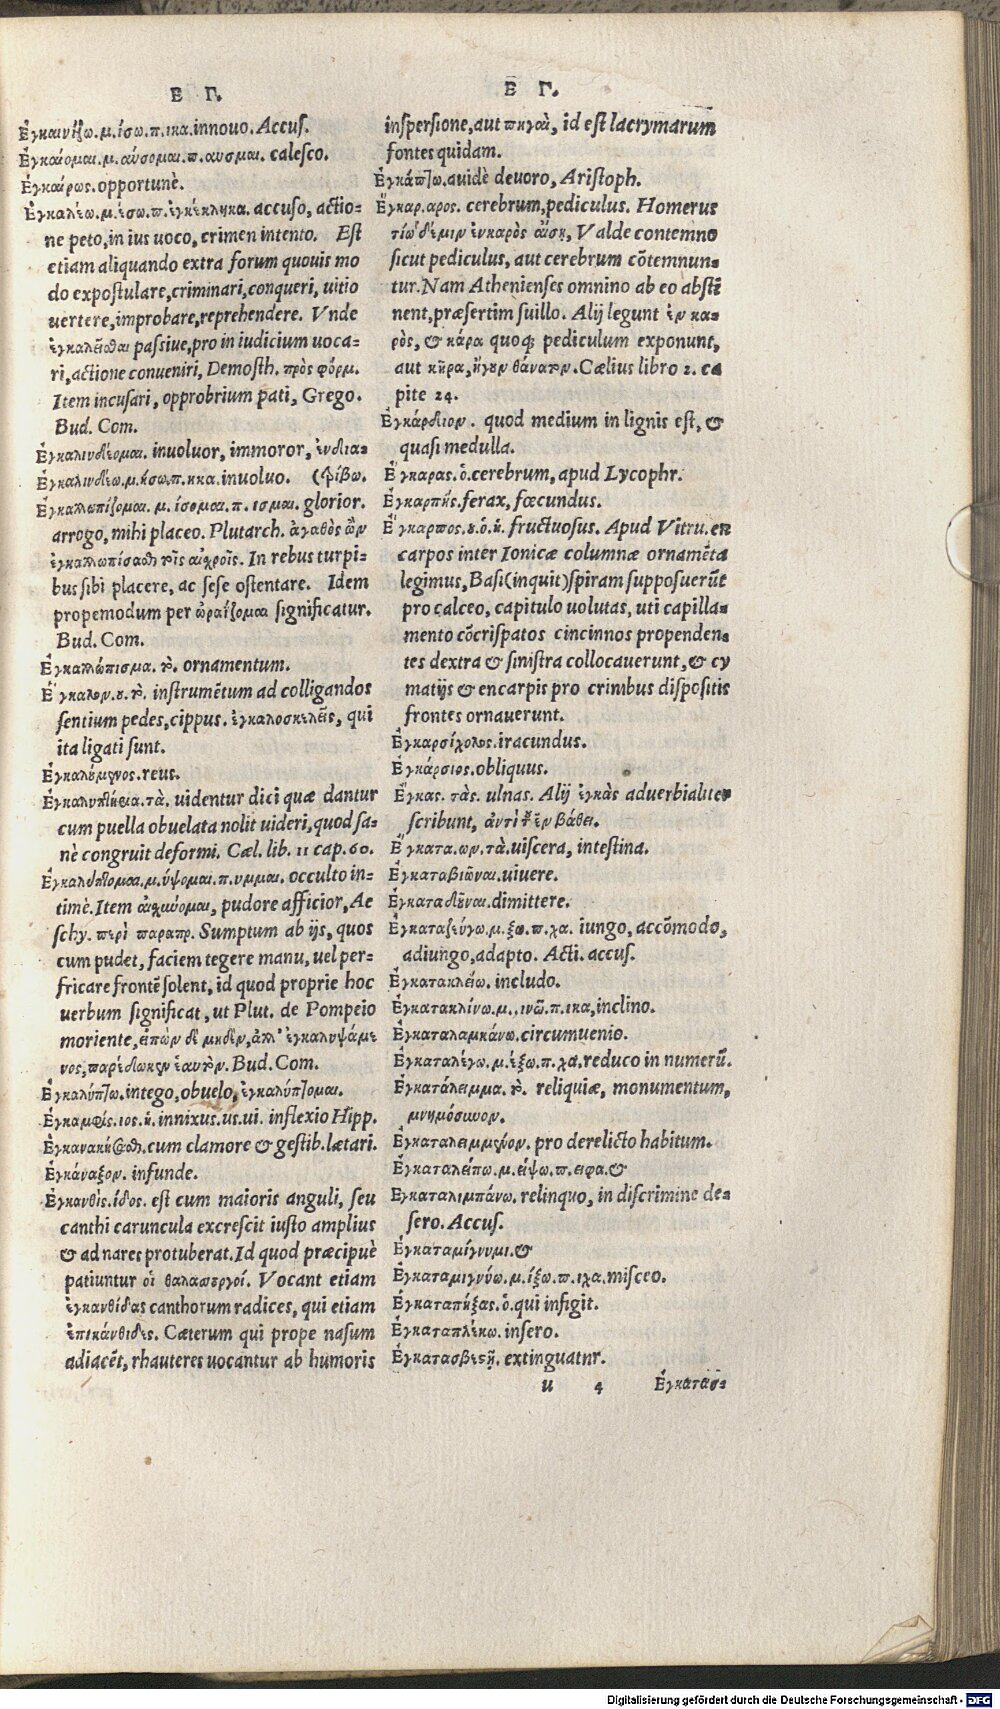 Ε Γ.
Ἐγκαινίζω.μ.ίσω.π.ικα.innouo. Accus.
Ἐγκαίομαι.μ.αύσομαι.π.αυσμαι. calesco.
Ἐγκαίρως.opportunè.
Ἐγκαλέω.μ.έσω.π.ἐγκέκληκα. accuso, actio=
ne peto,in ius uoco, crimen intento. Est
etiam aliquando extra forum quouis mo
do expostulare,criminari,conqueri, uitio
uertere,improbare,reprehendere. Vnde
ἐγκαλεῖσθαι passiue,pro in iudicium uoca=
ri,actione conueniri, Demosth. πρὸς φόρμ.
Item incusari, opprobrium pati, Grego.
Bud. Com.
Ἐγκαλινδέομαι. inuoluor, immoror, ἐνδια=
Ἐγκαλινδέω.μ.ήσω.π.ηκα.inuoluo. (τρίβω.
Ἐγκαλλωπίζομαι. μ. ίσομαι. π. ισμαι. glorior.
arrogo, mihi placeo. Plutarch. ἀγαθὸς ὢν
ἐγκαλλωπίσασθαι τοῖς αἰσχροῖς. In rebus turpi=
bus sibi placere, ac sese ostentare. Idem
propemodum per ὡραΐζομαι significatur.
Bud. Com.
Ἐγκαλλώπισμα. τὸ. ornamentum.
Ἔγκαλον.ου.τὸ. instrumẽtum ad colligandos
sentium pedes,cippus. ἐγκαλοσκελεῖς, qui
ita ligati sunt.
Ἐγκαλούμενος.reus.
Ἐγκαλυπτήρια.τὰ. uidentur dici quæ dantur
cum puella obuelata nolit uideri,quod sa=
nè congruit deformi. Cæl. lib. 11 cap. 60.
Ἐγκαλύπτομαι.μ.ύψομαι.π.υμμαι. occulto in=
timè.Item αἰσχύνομαι, pudore afficior, Ae
schy. περὶ παραπρ. Sumptum ab ijs, quos
cum pudet, faciem tegere manu, uel per=
fricare frontẽ solent, id quod proprie hoc
uerbum significat, ut Plut. de Pompeio
moriente, εἰπὼν δὲ μηδὲν, ἀλλ' ἐγκαλυψάμε
νος, παρέδωκεν ἑαυτὸν. Bud. Com.
Ἐγκαλύπτω.intego,obuelo, ἐγκαλύπτομαι.
Ἐγκαμφίς.ιος.ἡ.innixus.us.ui. inflexio Hipp.
cum clamore & gestib.lætari.
Ἐγκάναξον. infunde.
Ἐγκανθὶς.ίδος. est cum maioris anguli, seu
canthi caruncula excrescit iusto amplius
& ad nares protuberat.Id quod præcipuè
patiuntur οἱ θαλασσεργοί. Vocant etiam
ἐγκανθίδας canthorum radices, qui etiam
ἐπικάνθιδες. Cæterum qui prope nasum
adiacẽt, rhauteres uocantur ab humoris
Ε Γ.
inspersione,aut πηγαὶ, id est lacrymarum
fontes quidam.
Ἐγκάπτω.auidè deuoro, Aristoph.
Ἔγκαρ.αρος. cerebrum,pediculus. Homerus
τίω δέ μιν ἐνκαρὸς αἴσῃ, Valde contemno
sicut pediculus, aut cerebrum cõtemnun=
tur.Nam Athenienses omnino ab eo absti
nent,præsertim suillo. Alij legunt ἐν κα=
ρὸς, & κάρα quoq; pediculum exponunt,
aut κῆρα, ἤγουν θάνατον. Cælius libro 2. ca
pite 24.
Ἐγκάρδιον. quod medium in lignis est, &
quasi medulla.
Ἔγκαρας.ὁ.cerebrum, apud Lycophr.
Ἐγκαρπὴς.ferax, fœcundus.
Ἔγκαρπος.ου.ὁ.ἡ. fructuosus. Apud Vitru. en
carpos inter Ionicæ columnæ ornamẽta
legimus, Basi(inquit)spiram supposuerũt
pro calceo, capitulo uolutas, uti capilla=
mento cõcrispatos cincinnos propenden=
tes dextra & sinistra collocauerunt, & cy
matijs & encarpis pro crinibus dispositis
frontes ornauerunt.
Ἐγκαρσίχολος.iracundus.
Ἐγκάρσιος.obliquus.
Ἔγκας. τὰς. ulnas. Alij ἐγκὰς aduerbialiter
scribunt, ἀντὶ τοῦ ἐν βάθει.
Ἔγκατα.ων.τὰ.uiscera, intestina.
Ἐγκαταβιῶναι.uiuere.
Ἐγκαταδοῦναι.dimittere.
Ἐγκαταζεύγω.μ.ξω.π.χα. iungo, accõmodo,
adiungo,adapto. Acti. accus.
Ἐγκατακλείω. includo.
Ἐγκατακλίνω.μ.,ινῶ.π.ικα, inclino.
Ἐγκαταλαμκάνω.circumuenio.
Ἐγκαταλέγω.μ.έξω.π.χα.reduco in numerũ.
Ἐγκατάλειμμα. τὸ. reliquiæ, monumentum,
μνημόσυνον.
Ἐγκαταλειμμένον. pro derelicto habitum.
Ἐγκαταλείπω.μ.είψω.π.ειφα.&
Ἐγκαταλιμπάνω. relinquo, in discrimine de=
sero. Accus.
Ἐγκαταμίγνυμι.&
Ἐγκαταμιγνύω.μ.ίξω.π.ιχα.misceo.
Ἐγκαταπήξας.ὁ.qui infigit.
Ἐγκαταπλέκω. insero.
Ἐγκατασβεστῇ. extinguatnr.
u 4 Ἐγκατασ=
Digitalisierung gefördert durch die Deutsche Forschungsgemeinschaft - DFG